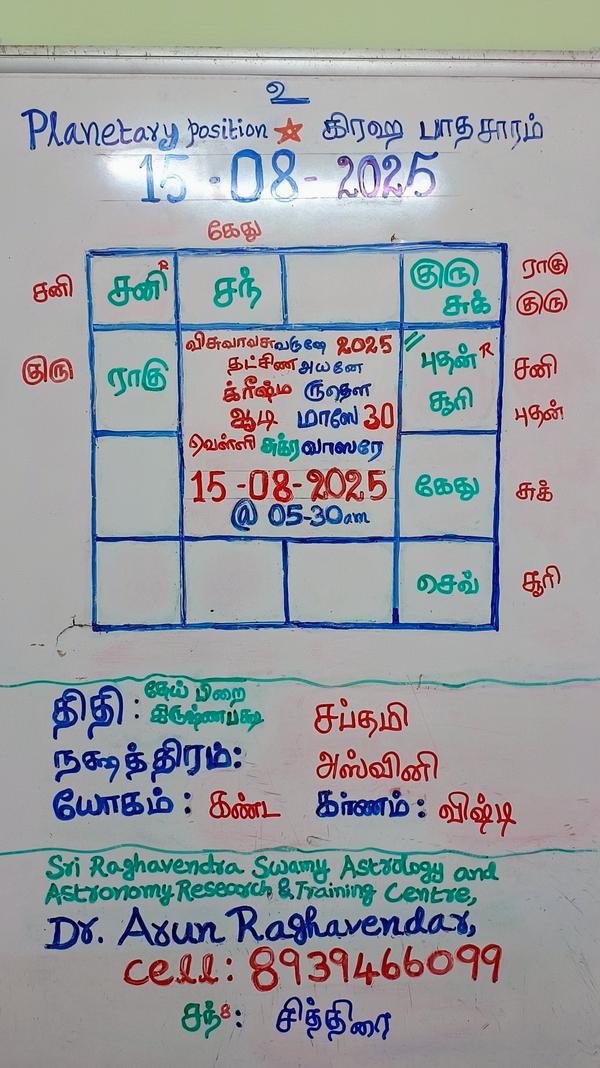 உ
Planetary position கிரஹ பாதசாரம்
15-08-2025
கேது
சனி
சனி R
சந்
குரு
சுக்
ராகு
குரு
குரு
ராகு
விசுவாவசுவருஷே 2025
தட்சிண அயனே
க்ரீஷ்ம ருதௌ
ஆடி மாஸே 30
வெள்ளி சுக்ரவாஸரே
15-08-2025
@ 05-30am
புதன் R
சூரி
சனி
புதன்
கேது
சுக்
செவ்
சூரி
திதி : தேய் பிறை கிருஷ்ணபக்ஷ சப்தமி
நக்ஷத்திரம்: அஸ்வினி
யோகம் : கண்ட கர்ணம் : விஷ்டி
Sri Raghavendra Swamy Astrology and
Astronomy Research & Training Centre,
Dr. Arun Raghavendar,
Cell: 8939466099
சந்8: சித்திரை